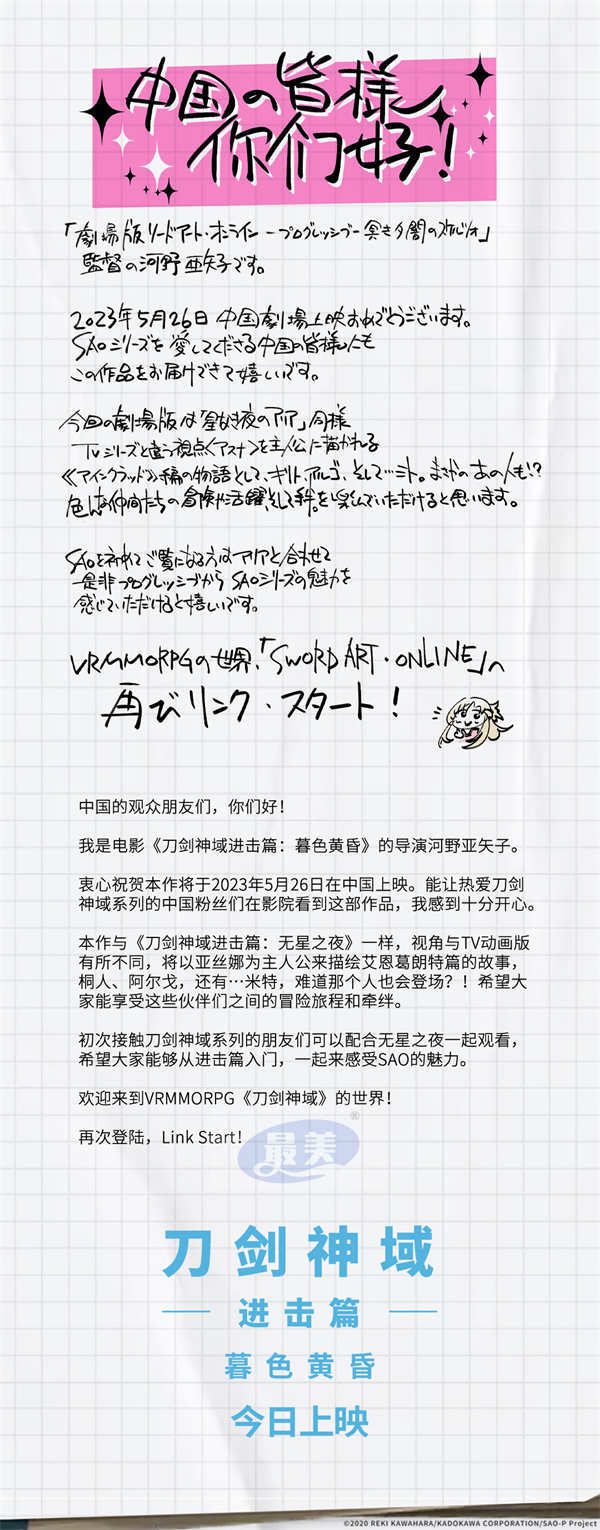 中国の皆様
你们好！
「劇場版ソードアート・オンライン -プログレッシブ- 冥き夕闇のスケルツォ」
監督の河野亜矢子です。
2023年5月26日 中国劇場上映おめでとうございます。
SAOシリーズを愛してくださる中国の皆様にも
この作品をお届けできて嬉しいです。
今回の劇場版は「星なき夜のアリア」同様
TVシリーズと違う視点〈アスナ〉を主人公に描かれる
《アインクラッド》編の物語として、キリト、アルゴ、そして…ミト。まさかのあの人も!?
色んな仲間たちの冒険や活躍、そして絆。を楽しんでいただけると思います。
SAOを初めてご覧になる方はアリアと合わせて
是非プログレッシブからSAOシリーズの魅力を
感じていただけると嬉しいです。
VRMMORPGの世界、「SWORD ART・ONLINE」へ
再びリンク・スタート！
中国的观众朋友们，你们好！
我是电影《刀剑神域进击篇：暮色黄昏》的导演河野亚矢子。
衷心祝贺本作将于2023年5月26日在中国上映。能让热爱刀剑
神域系列的中国粉丝们在影院看到这部作品，我感到十分开心。
本作与《刀剑神域进击篇：无星之夜》一样，视角与TV动画版
有所不同，将以亚丝娜为主人公来描绘艾恩葛朗特篇的故事，
桐人、阿尔戈，还有…米特，难道那个人也会登场？！希望大
家能享受这些伙伴们之间的冒险旅程和牵绊。
初次接触刀剑神域系列的朋友们可以配合无星之夜一起观看，
希望大家能够从进击篇入门，一起来感受SAO的魅力。
欢迎来到VRMMORPG《刀剑神域》的世界！
再次登陆，Link Start！
最美®
刀剑神域
进击篇
暮色黄昏
今日上映
©2020 REKI KAWAHARA/KADOKAWA CORPORATION/SAO-P Project